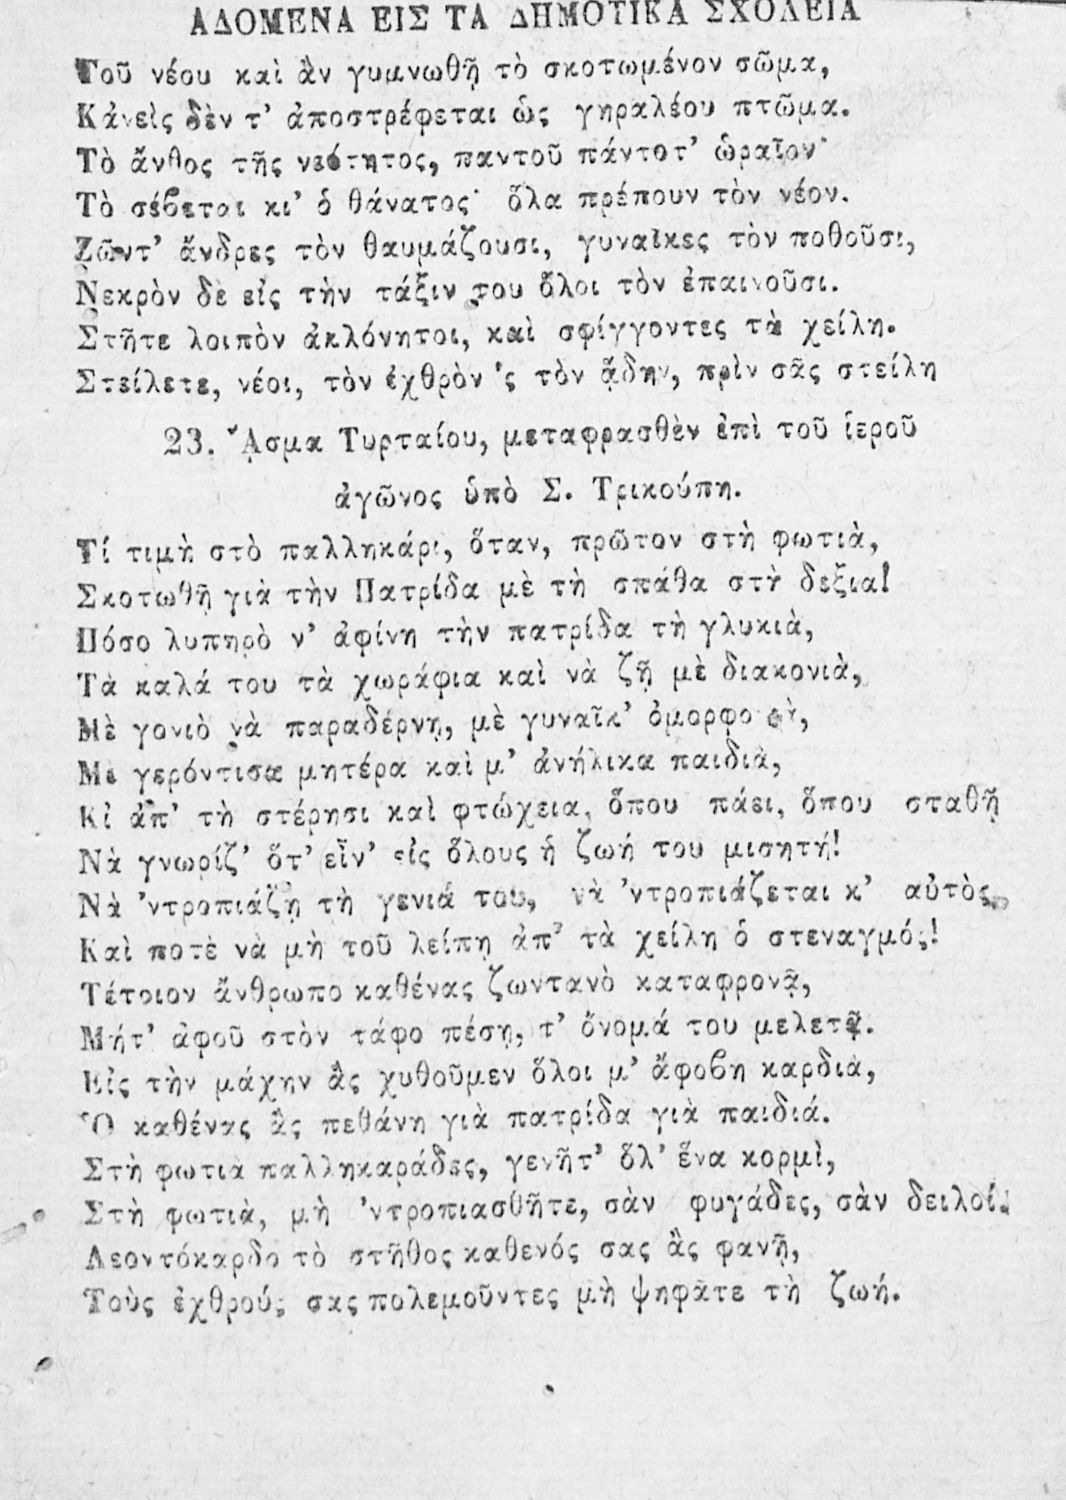 ΑΔΟΜΕΝΑ ΕΙΣ ΤΑ ΔΗΜΟΤΙΚΑ ΣΧΟΛΕΙΑ
Τοῦ νέου καὶ ἂν γυμνωθῇ τὸ σκοτωμένον σῶμα,
Κἀνεὶς δὲν τ' ἀποστρέφεται ὡς γηραλέου πτῶμα.
Τὸ ἄνθος τῆς νεότητος, παντοῦ πάντοτ' ὡραῖον·
Τὸ σέβεται κι' ὁ θάνατος· ὅλα πρέπουν τὸν νέον.
Ζῶντ' ἄνδρες τὸν θαυμάζουσι, γυναῖκες τὸν ποθοῦσι,
Νεκρὸν δὲ εἰς τὴν τάξιν του ὅλοι τὸν ἐπαινοῦσι.
Στῆτε λοιπὸν ἀκλόνητοι, καὶ σφίγγοντες τὰ χείλη.
Στείλετε, νέοι, τὸν ἐχθρὸν 'ς τὸν ᾅδην, πρὶν σᾶς στείλη
23. ᾎσμα Τυρταίου, μεταφρασθὲν ἐπὶ τοῦ ἱεροῦ
ἀγῶνος ὑπὸ Σ. Τρικούπη.
Τί τιμὴ στὸ παλληκάρι, ὅταν, πρῶτον στὴ φωτιὰ,
Σκοτωθῇ γιὰ τὴν Πατρίδα μὲ τὴ σπάθα στὴ δεξιὰ!
Πόσο λυπηρὸ ν' ἀφίνη τὴν πατρίδα τὴ γλυκιὰ,
Τὰ καλά του τὰ χωράφια καὶ νὰ ζῇ μὲ διακονιὰ,
Μὲ γονιὸ νὰ παραδέρνῃ, μὲ γυναῖκ'
Μὲ γερόντισα μητέρα καὶ μ' ἀνήλικα παιδιὰ,
Κἰ ἀπ' τὴ στέρησι καὶ φτώχεια, ὅπου πάει, ὅπου σταθῇ
Νὰ γνωρίζ' ὅτ' εἶν' εἰς ὅλους ἡ ζωή του μισητή!
Νὰ 'ντροπιάζῃ τὴ γενιά του, νὰ 'ντροπιάζεται κ' αὐτὸς,
Καὶ ποτὲ νὰ μὴ τοῦ λείπῃ ἀπ' τὰ χείλη ὁ στεναγμός!
Τέτοιον ἄνθρωπο καθένας ζωντανὸ καταφρονᾷ,
Μήτ' ἀφοῦ στὸν τάφο πέσῃ, τ' ὄνομά του μελετᾷ.
Εἰς τὴν μάχην ἂς χυθοῦμεν ὅλοι μ' ἄφοβη καρδιὰ,
Ὁ καθένας ἂς πεθάνη γιὰ πατρίδα γιὰ παιδιά.
Στὴ φωτιὰ παλληκαράδες, γενῆτ' ὅλ' ἕνα κορμὶ,
Στὴ φωτιὰ, μὴ 'ντροπιασθῆτε, σὰν φυγάδες, σὰν δειλοί.
Λεοντόκαρδο τὸ στῆθος καθενός σας ἂς φανῇ,
Τοὺς ἐχθρούς σας πολεμοῦντες μὴ ψηφᾶτε τὴ ζωή.